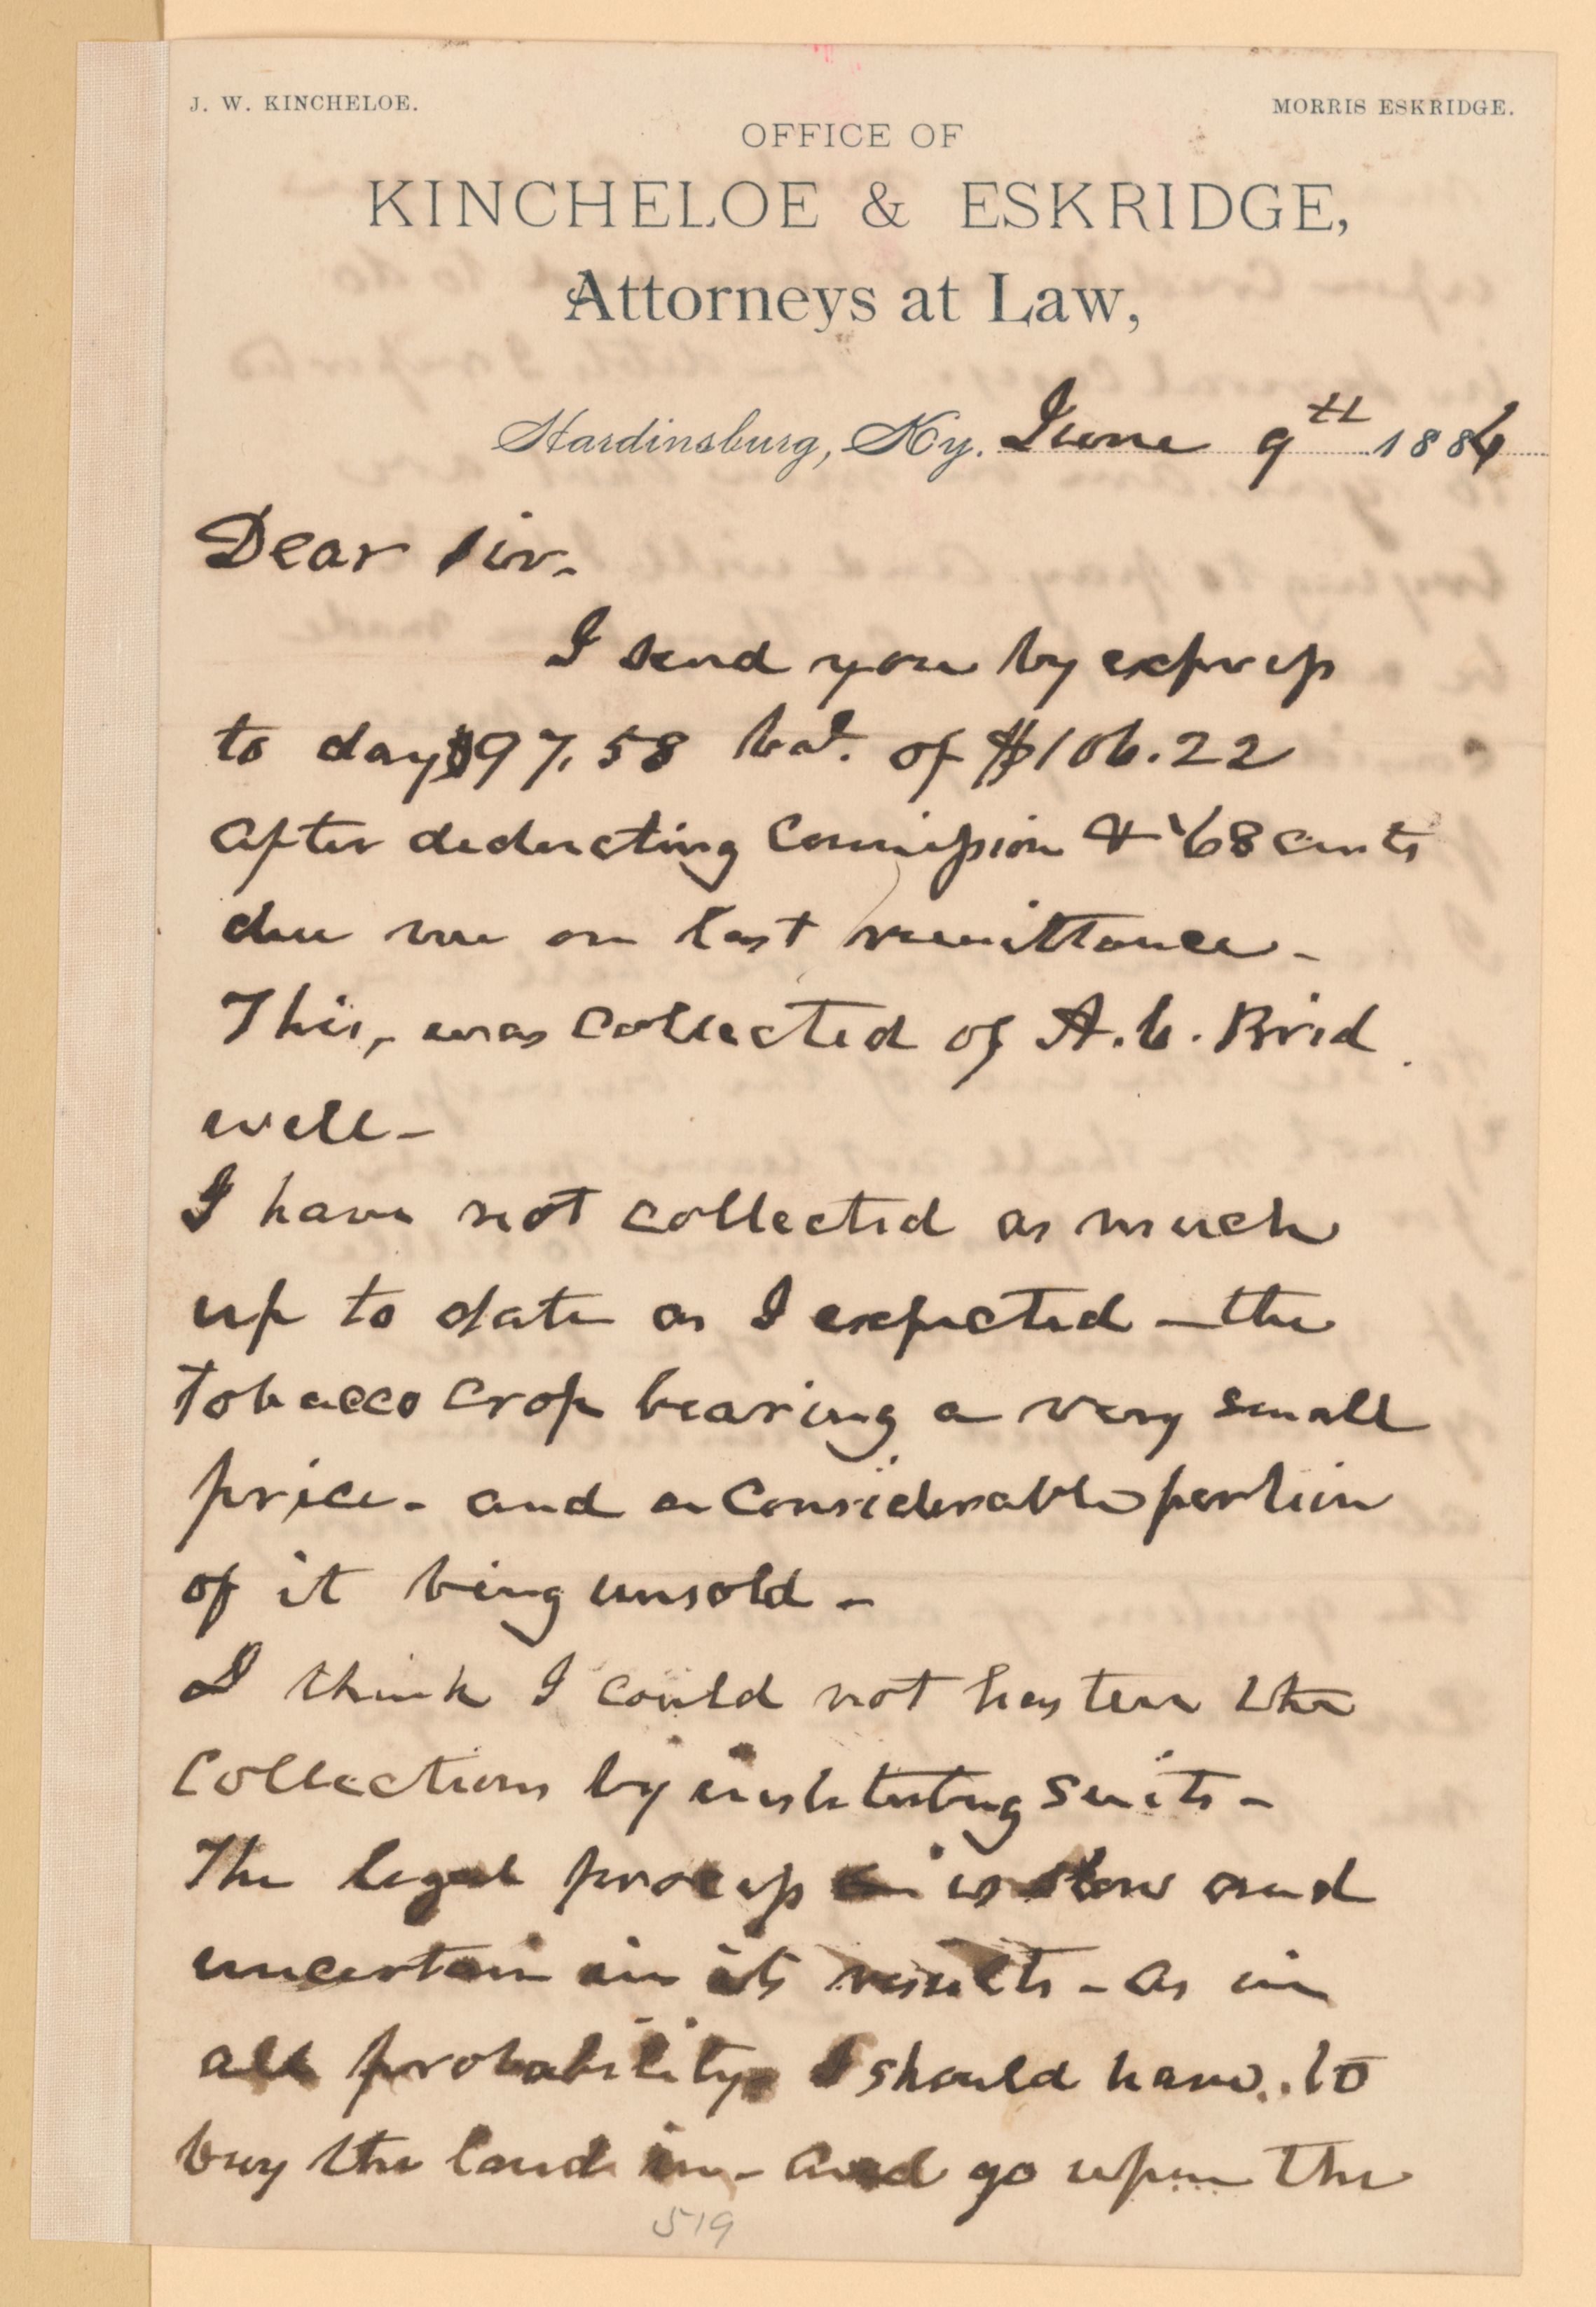 J. W. KINCHELOE.
MORRIS ESKRIDGE.
OFFICE OF
KINCHELOE & ESKRIDGE,
Attorneys at Law,
Hardinsburg, Ky. June 9th 1884
Dear Sir.
I send you by express
to day $97.58 bal. of $106.22
after deducting Commission & 68 cents
due me on last remittance -
This, was collected of A. C. Brid
well -
I have not collected as much
up to date as I expected - the
Tobacco crop bearing a very small
price - and a considerable portion
of it being unsold -
I think I could not hasten the
collections by instituting suits -
The legal process is slow and
uncertain in its results - as in
all probability I should have to
buy the land in - and go upon the
519